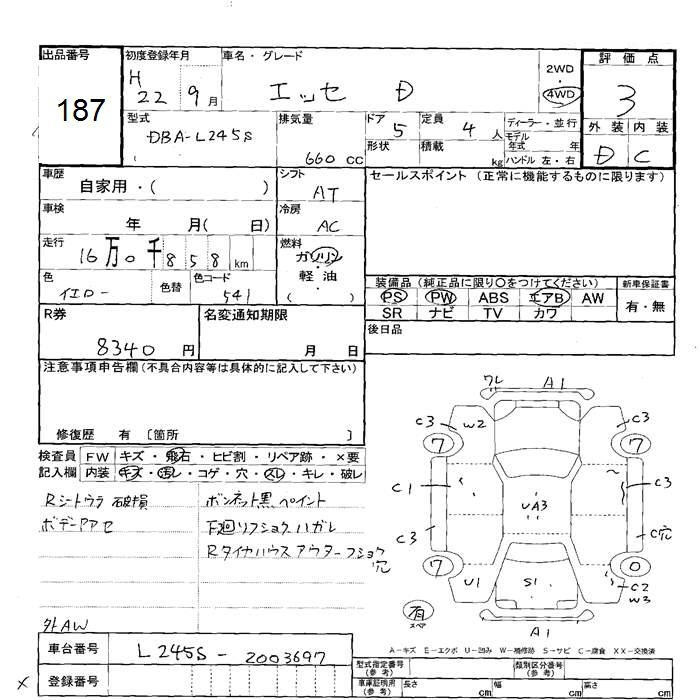 出品番号
187
初度登録年月
H 22 9月
車名・グレード
エッセ D
2WD
・
4WD
評価点
3
外装 内装
D C
型式
DBA-L245S
排気量
660 CC
ドア 5
形状
定員 4 人
積載 kg
ディーラー・並行
モデル年式 年
ハンドル 左・右
車歴
自家用・( )
シフト
AT
セールスポイント (正常に機能するものに限ります)
車検
年 月( 日)
冷房
AC
走行
16万0千858km
燃料
ガソリン
・
軽油
( )
色
イエロー
色替
色コード
541
装備品 (純正品に限り○をつけてください)
PS PW ABS エアB AW
SR ナビ TV カワ
新車保証書
有・無
R券
8340 円
名変通知期限
月 日
後日品
注意事項申告欄 (不具合内容等は具体的に記入して下さい)
修復歴 有 〔箇所 〕
検査員記入欄
FW キズ・飛石・ヒビ割・リペア跡・×要
内装 キズ・汚レ・コゲ・穴・スレ・キレ・破レ
Rシートウラ 破損
ボデーアセ
ボンネット黒ペイント
下廻リフショク ハガレ
Rタイヤハウス アウターフショク穴
外AW
ワレ A1
C3 W2 C3
7 7
C1 C3
UA3
C3 C穴
7 0
U1 S1 C2
W3
有
スペア
A1
A-キズ E-エクボ U-凹み W-補修跡 S-サビ C-腐食 XX-交換済
車台番号
L245S-2003697
登録番号
×
型式指定番号(参考)
類別区分番号(参考)
車庫証明用(参考)
長さ cm 幅 cm 高さ cm